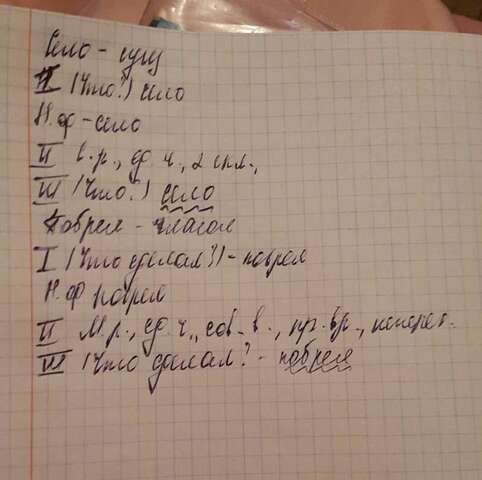 Село - сущ
I (Что?) село
Н.ф - село
II в.р., ед.ч., 2 скл.,
III (Что?) село
Побрел - глагол
I (Что сделал?) - побрел
Н.ф побрел
II М.р., ед.ч., сов. в., пр. вр., неперех.
III (Что сделал? - побрел